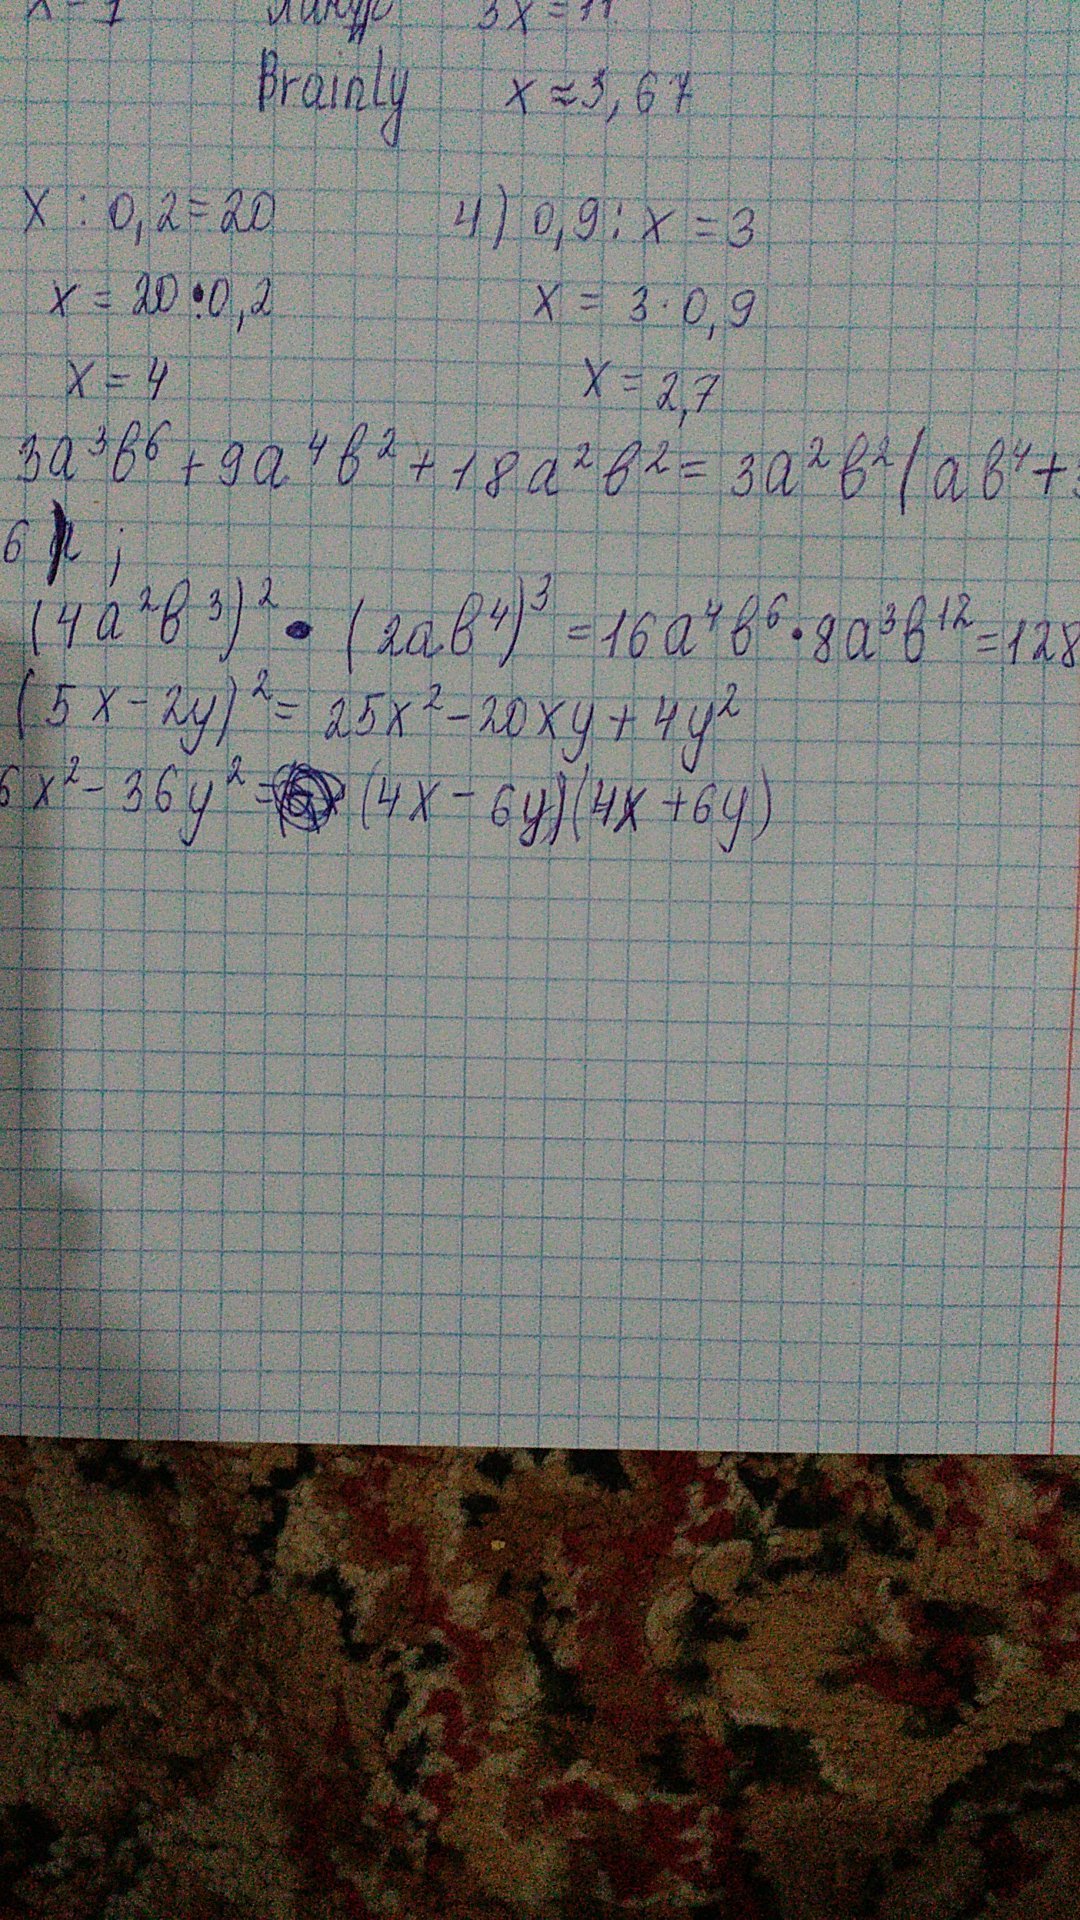 3x = 11
Brainly x ≈ 3,67
x : 0,2 = 20 4) 0,9 : x = 3
x = 20 • 0,2 x = 3 · 0,9
x = 4 x = 2,7
3a³b⁶ + 9a⁴b² + 18a²b² = 3a²b² (ab⁴ +
6 ;
(4a²b³)² • (2ab⁴)³ = 16a⁴b⁶ • 8a³b¹² = 128
(5x - 2y)² = 25x² - 20xy + 4y²
6x² - 36y² = (4x - 6y)(4x + 6y)